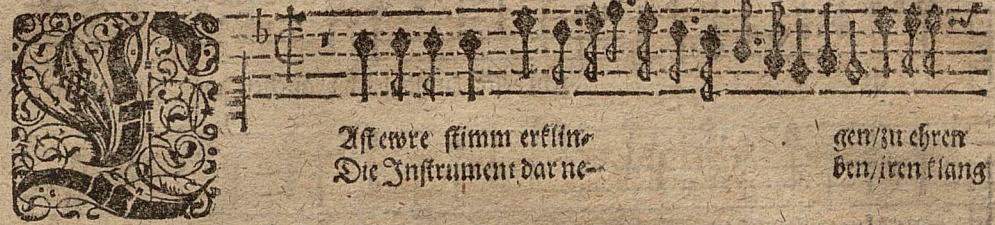 LAst ewre stimm erklin- gen/zu ehren
Die Instrument dar ne- ben/iren klang